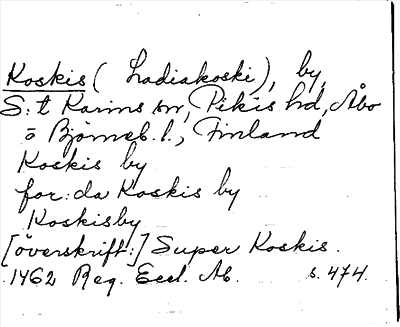 Koskis (Ladiakoski), by,
S:t Karins sn, Pikis hd, Åbo
o Björneb. l., Finland
Koskis by
for: da Koskis by
Koskisby
[överskrift:] Super Koskis.
1462 Reg. Eccl. Ab. s. 474.